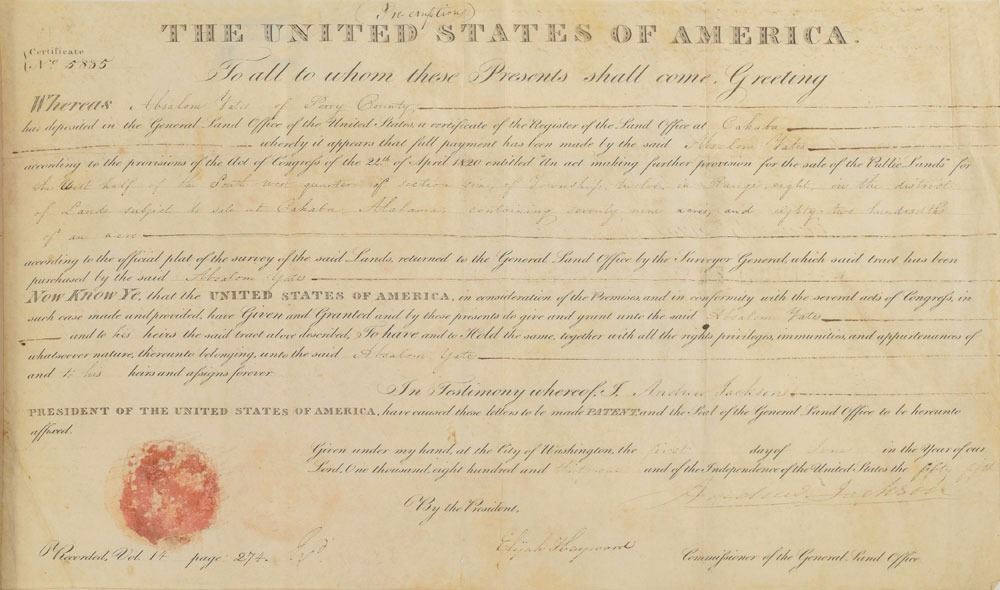 (In eruption)
THE UNITED STATES OF AMERICA.
Certificate
No 5835
To all to whom these Presents shall come, Greeting
Whereas Absalom Yates of Perry County,
has deposited in the General Land Office of the United States, a certificate of the Register of the Land Office at Cahaba
whereby it appears that full payment has been made by the said Absalom Yates
according to the provisions of the Act of Congress of the 24th of April 1820 entitled "An act making further provision for the sale of the Public Lands" for
the West half of the South West quarter of section of Township twelve, in Range eight, in the district
of Lands subject to sale at Cahaba, Alabama, containing seventy nine acres, and eighty two hundredths
of an acre
according to the official plat of the survey of the said Lands, returned to the General Land Office by the Surveyor General, which said tract has been
purchased by the said Absalom Yates
Now Know Ye, that the UNITED STATES OF AMERICA, in consideration of the Premises, and in conformity with the several acts of Congress, in
such case made and provided, have Given and Granted and by these presents do give and grant unto the said Absalom Yates
and to his heirs the said tract above described, To have and to Hold the same, together with all the rights, privileges, immunities, and appurtenances of
whatsoever nature, thereunto belonging, unto the said Absalom Yates
and to his heirs and assigns forever
In Testimony whereof, I, Andrew Jackson
PRESIDENT OF THE UNITED STATES OF AMERICA, have caused these letters to be made PATENT, and the Seal of the General Land Office to be hereunto
affixed.
Given under my hand, at the City of Washington, the first day of June in the Year of our
Lord, One thousand, eight hundred and and of the Independence of the United States the fifty fifth
Andrew Jackson
By the President,
Elijah Hayward Commissioner of the General Land Office
Recorded, Vol. 14 page 274.